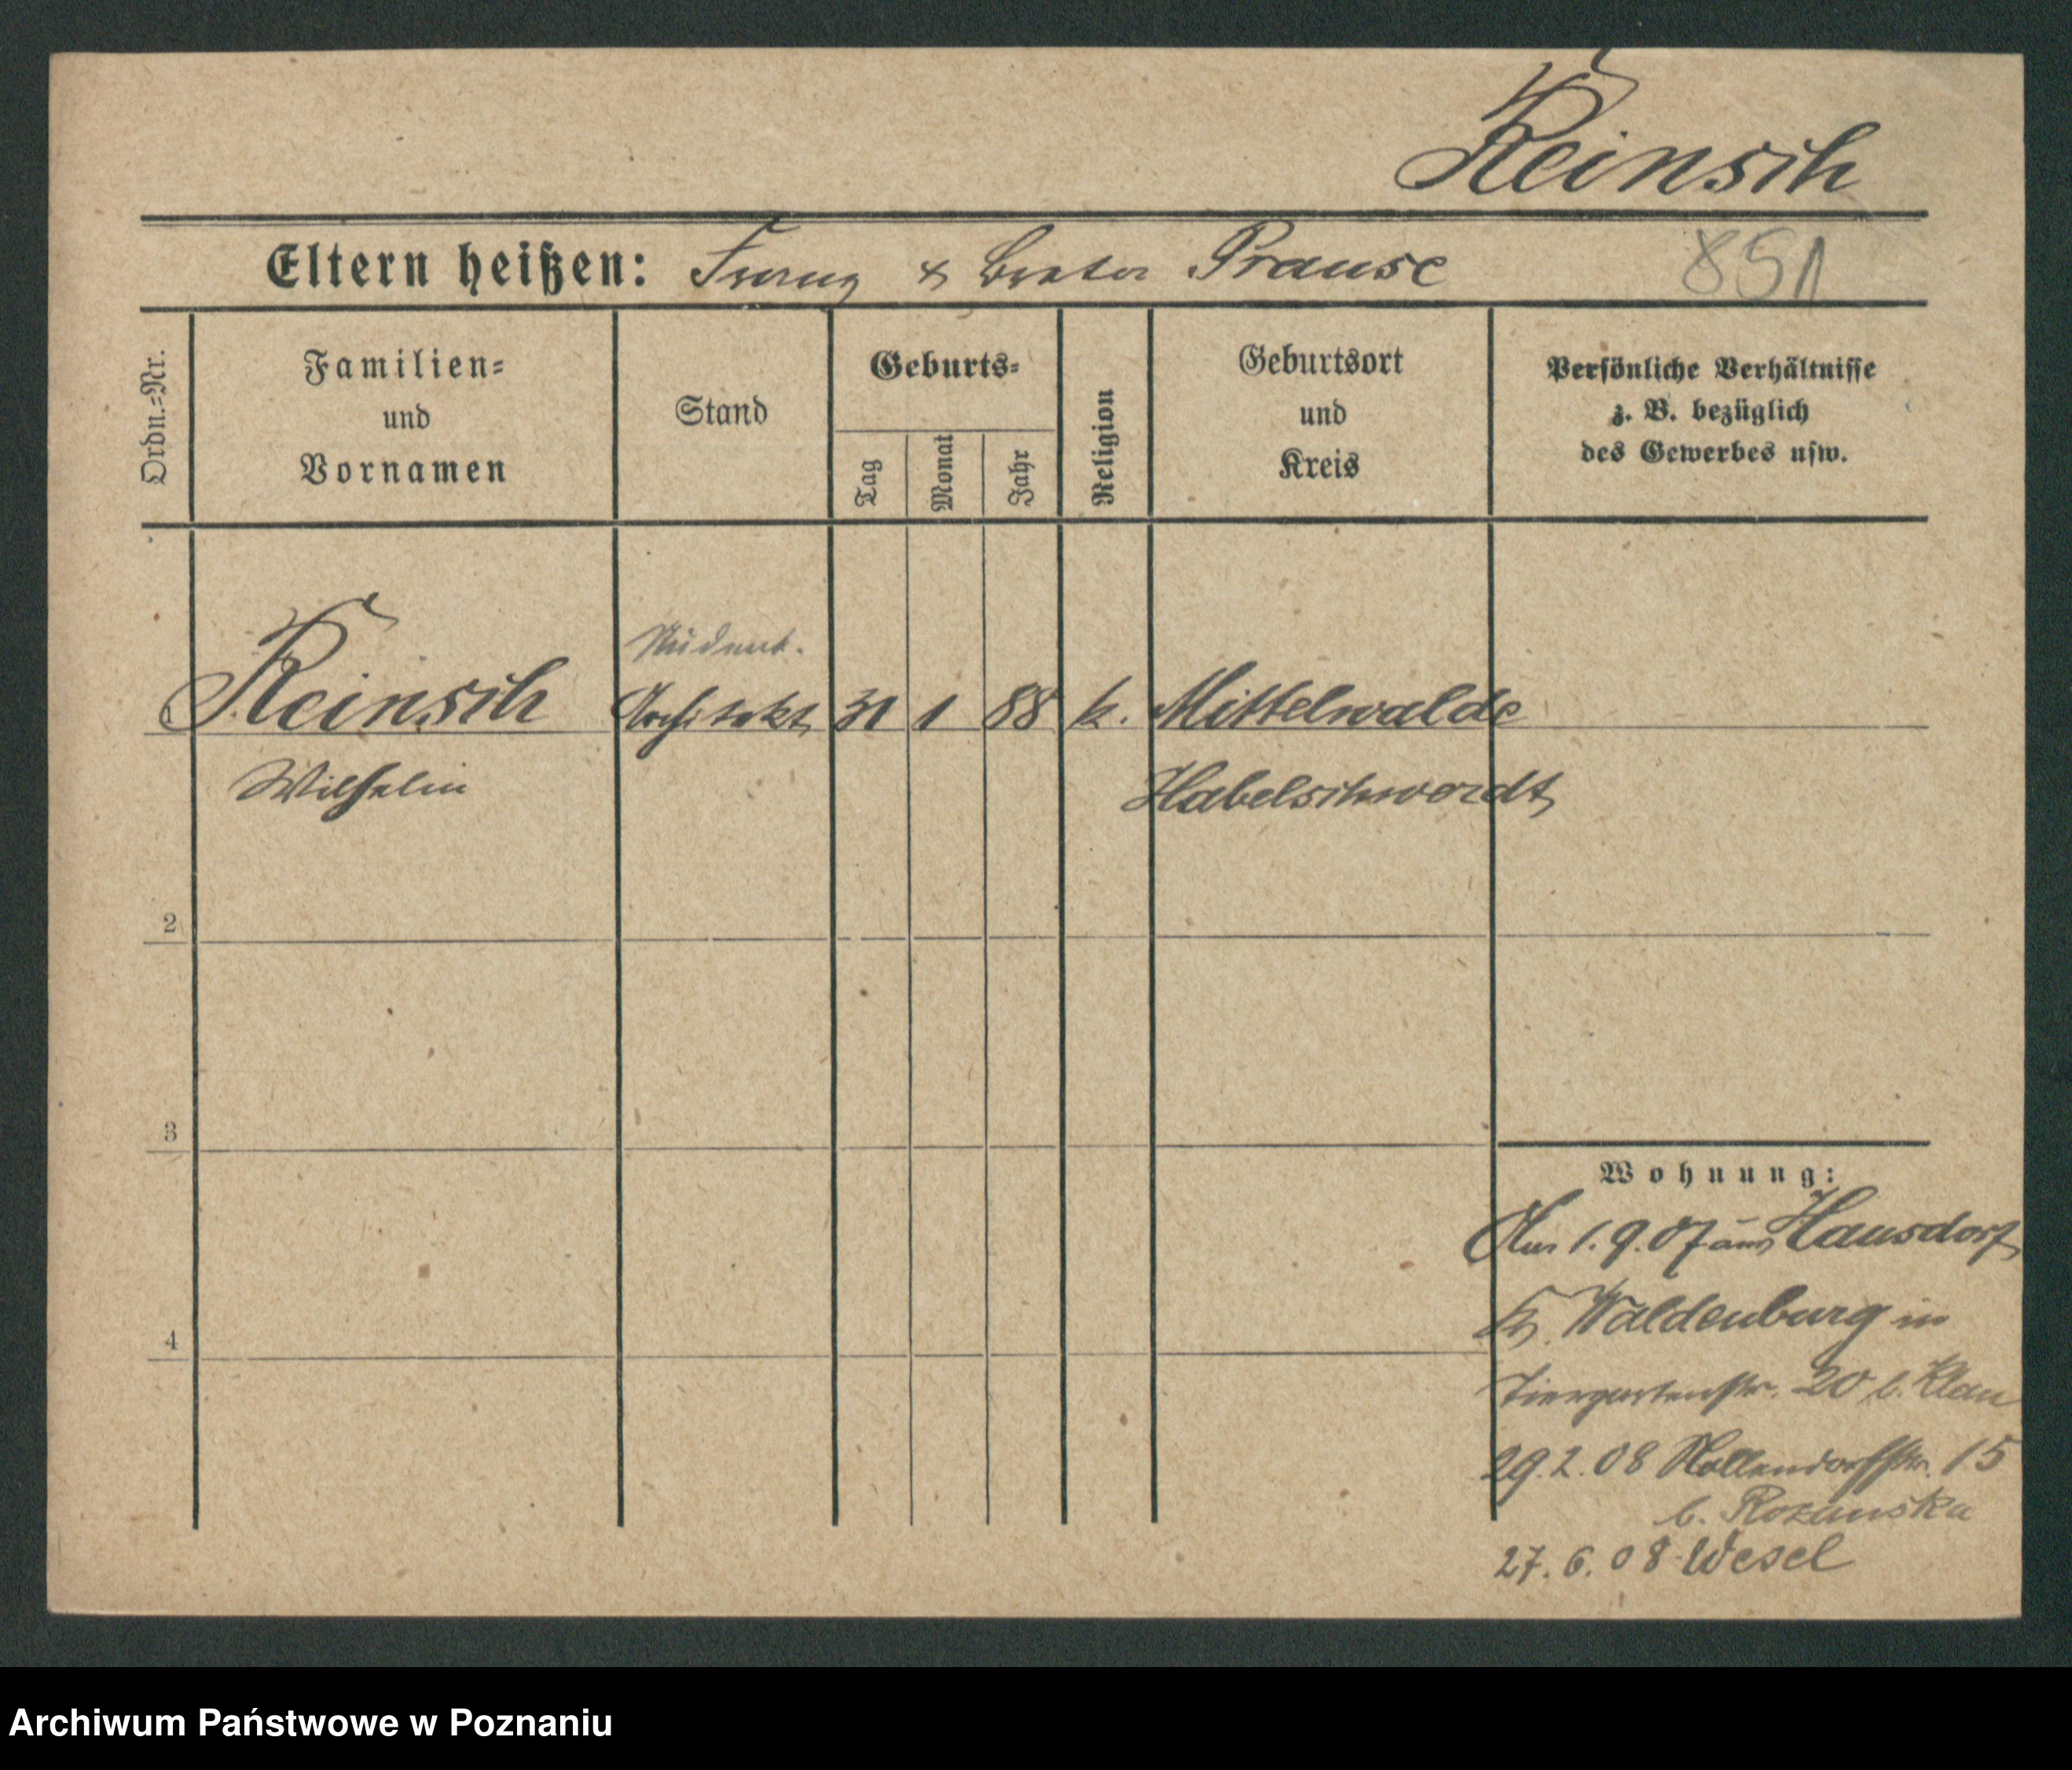 Reinsch
Eltern heißen: Franz & Beata Prause
851
Ordn.-Nr.
Familien-
und
Vornamen
Stand
Geburts-
Tag
Monat
Jahr
Religion
Geburtsort
und
Kreis
Persönliche Verhältnisse
z. B. bezüglich
des Gewerbes usw.
Student.
Reinsch Architekt 31 1 88 k. Mittelwalde
Wilhelm Habelschwerdt
2
3
4
Wohnung:
Am 1.9.07 aus Hausdorf
Kr. Waldenburg in
Tiergartenstr. 20 b. Klau
29.2.08 Nollendorfstr. 15
b. Rozanska
27.6.08 Wesel
Archiwum Państwowe w Poznaniu